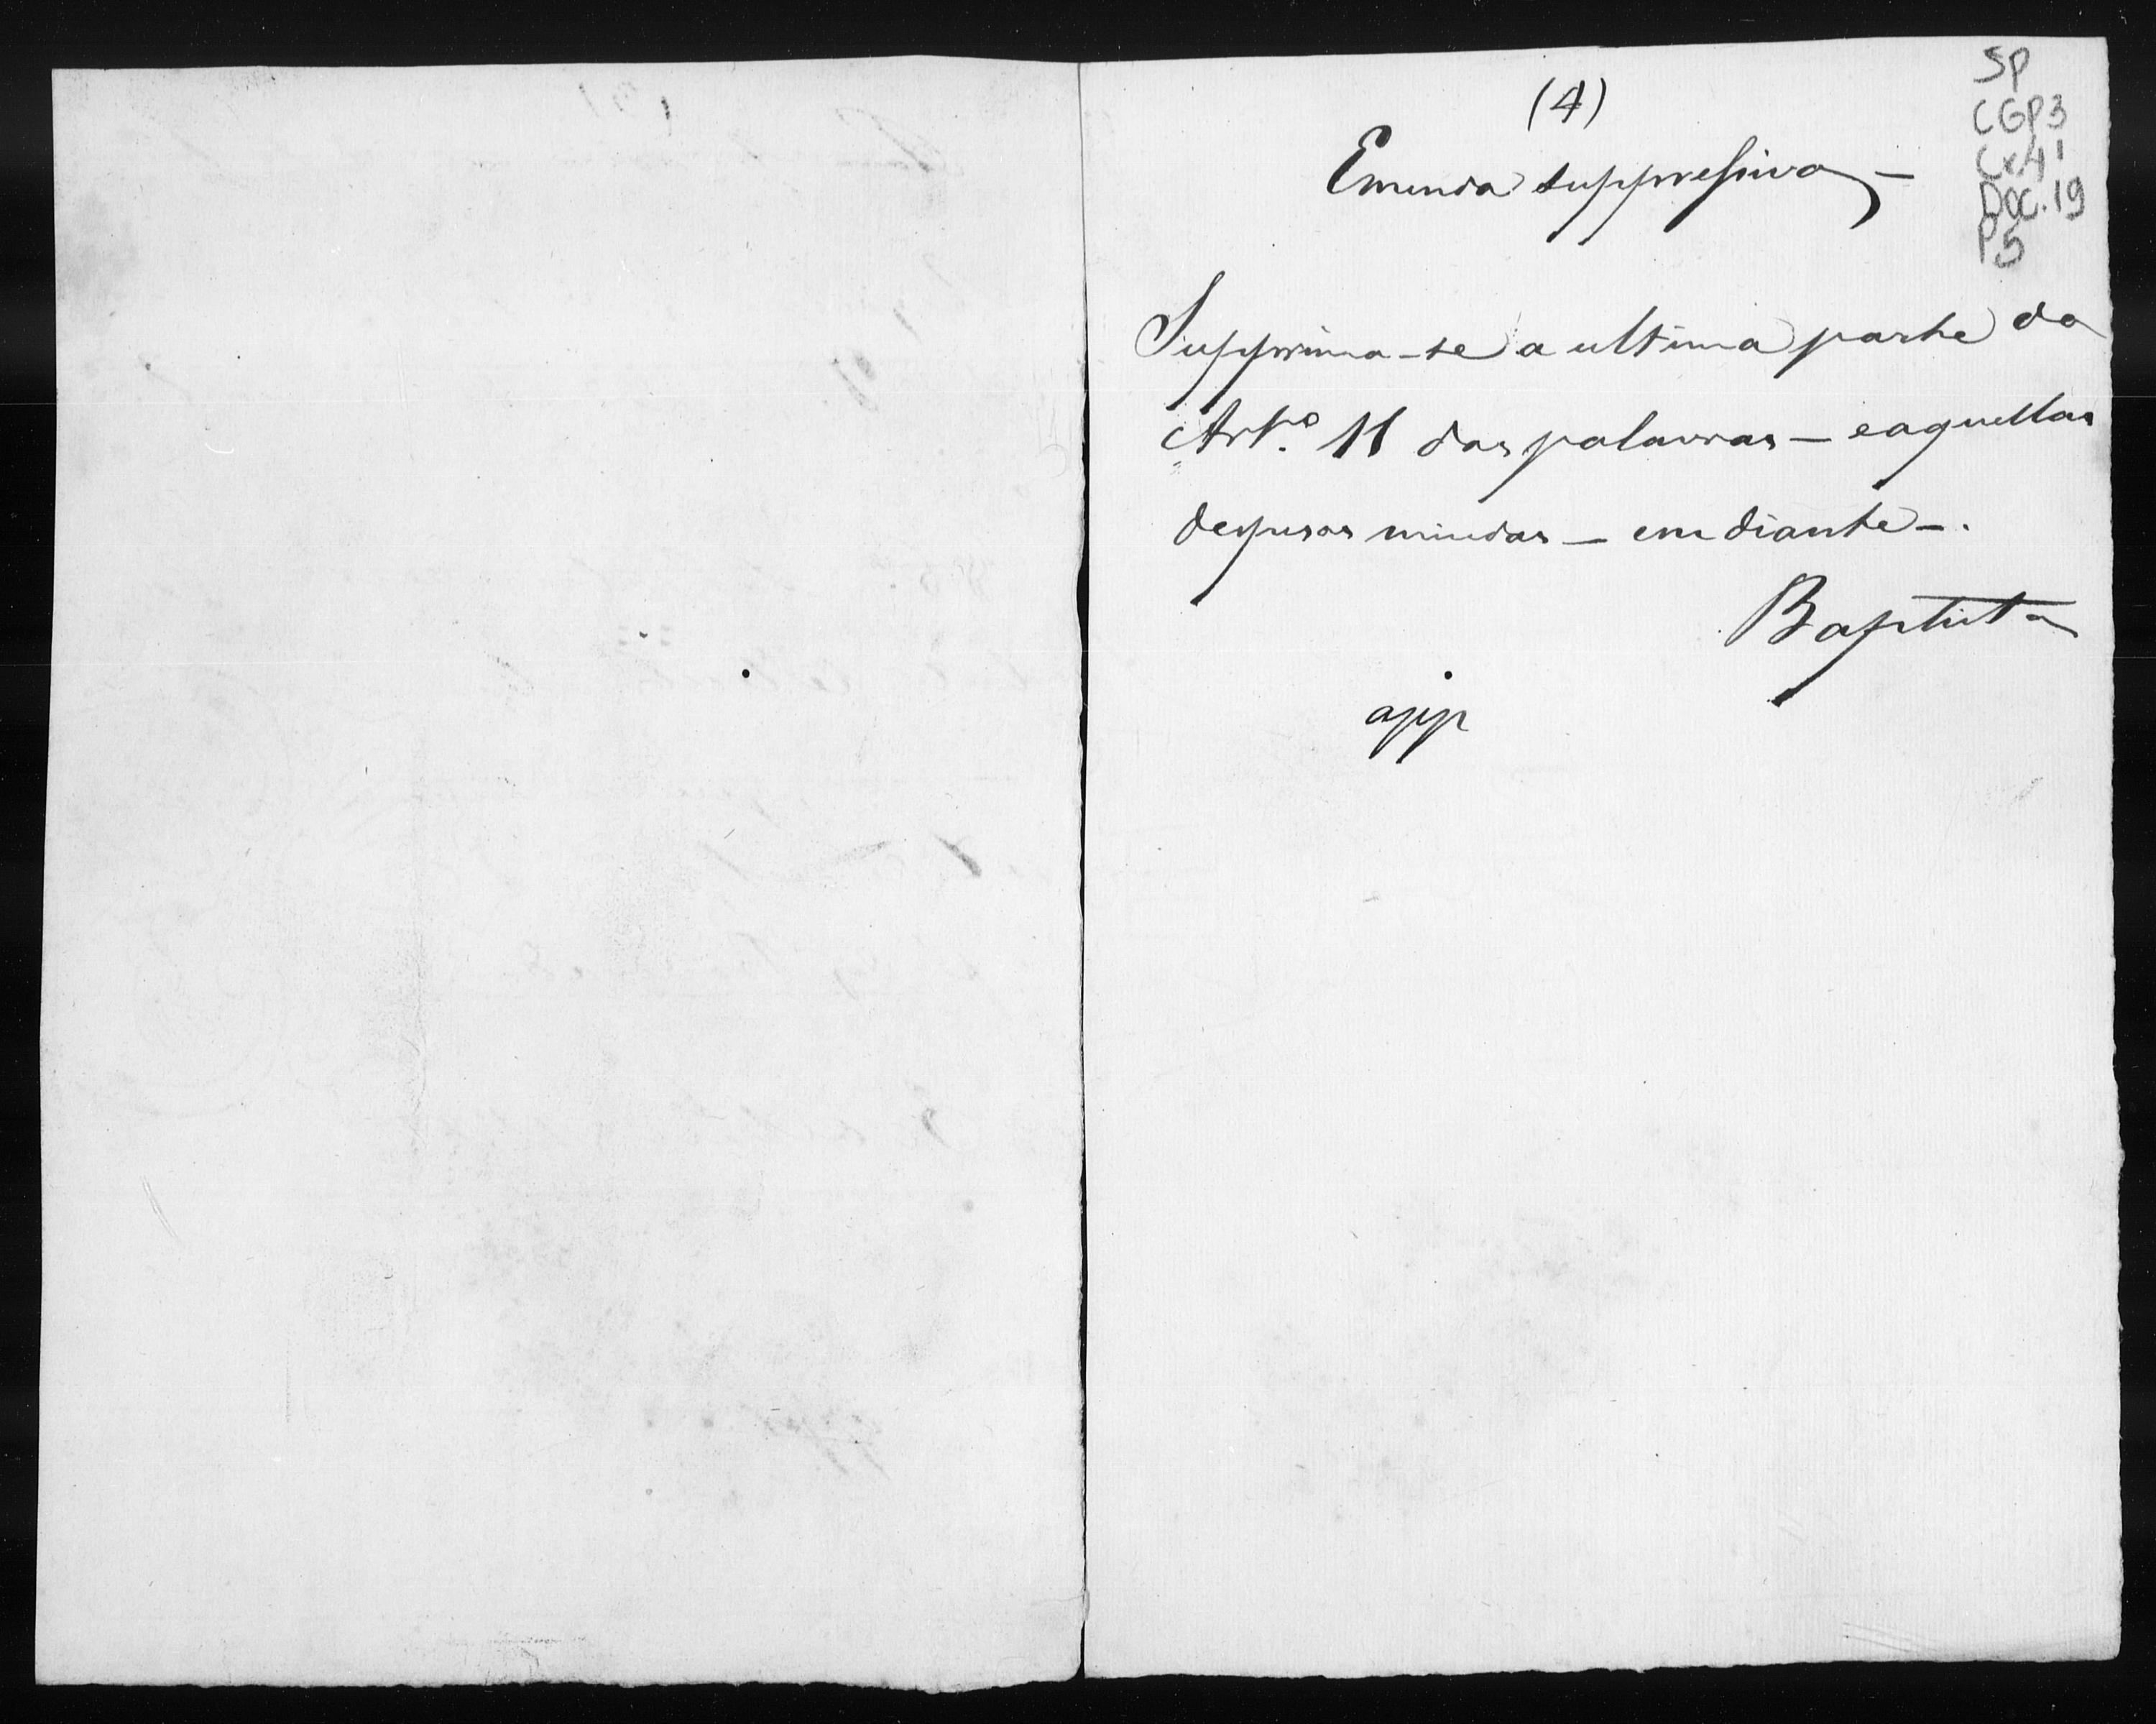 (4)
SP
CGP3
Cx41
Doc. 19
P5
Emenda suppressiva —
Supprima-se a ultima parte do
Artº. 11 das palavras — e aquellas
despesas miudas — em diante —.
Baptista
app